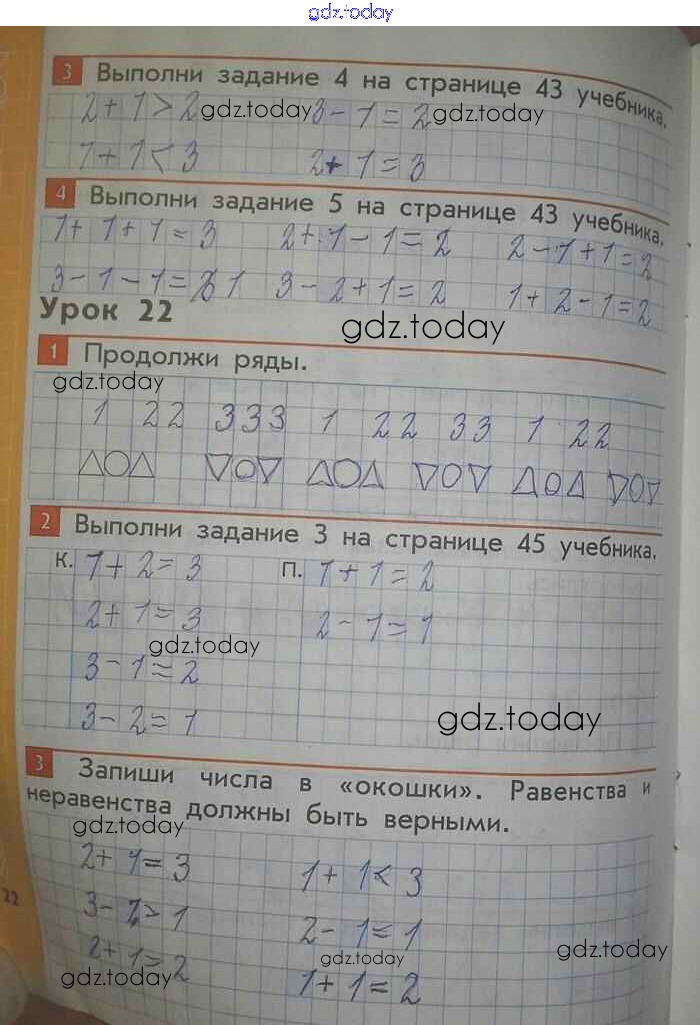 gdz.today
3 Выполни задание 4 на странице 43 учебника.
2 + 1 > 2 gdz.today 3 - 1 = 2 gdz.today
1 + 1 < 3 2 + 1 = 3
4 Выполни задание 5 на странице 43 учебника.
1 + 1 + 1 = 3 2 + 1 - 1 = 2 2 - 1 + 1 = 2
3 - 1 - 1 = 1 3 - 2 + 1 = 2 1 + 2 - 1 = 2
Урок 22
gdz.today
1 Продолжи ряды.
gdz.today
1 22 333 1 22 33 1 22
2 Выполни задание 3 на странице 45 учебника.
К. 1 + 2 = 3 П. 1 + 1 = 2
2 + 1 = 3 2 - 1 = 1
gdz.today
3 - 1 = 2
3 - 2 = 1 gdz.today
3 Запиши числа в «окошки». Равенства и
неравенства должны быть верными.
gdz.today
2 + 1 = 3 1 + 1 < 3
22
3 - 1 > 1 2 - 1 = 1
2 + 1 = 2 gdz.today gdz.today
gdz.today 1 + 1 = 2